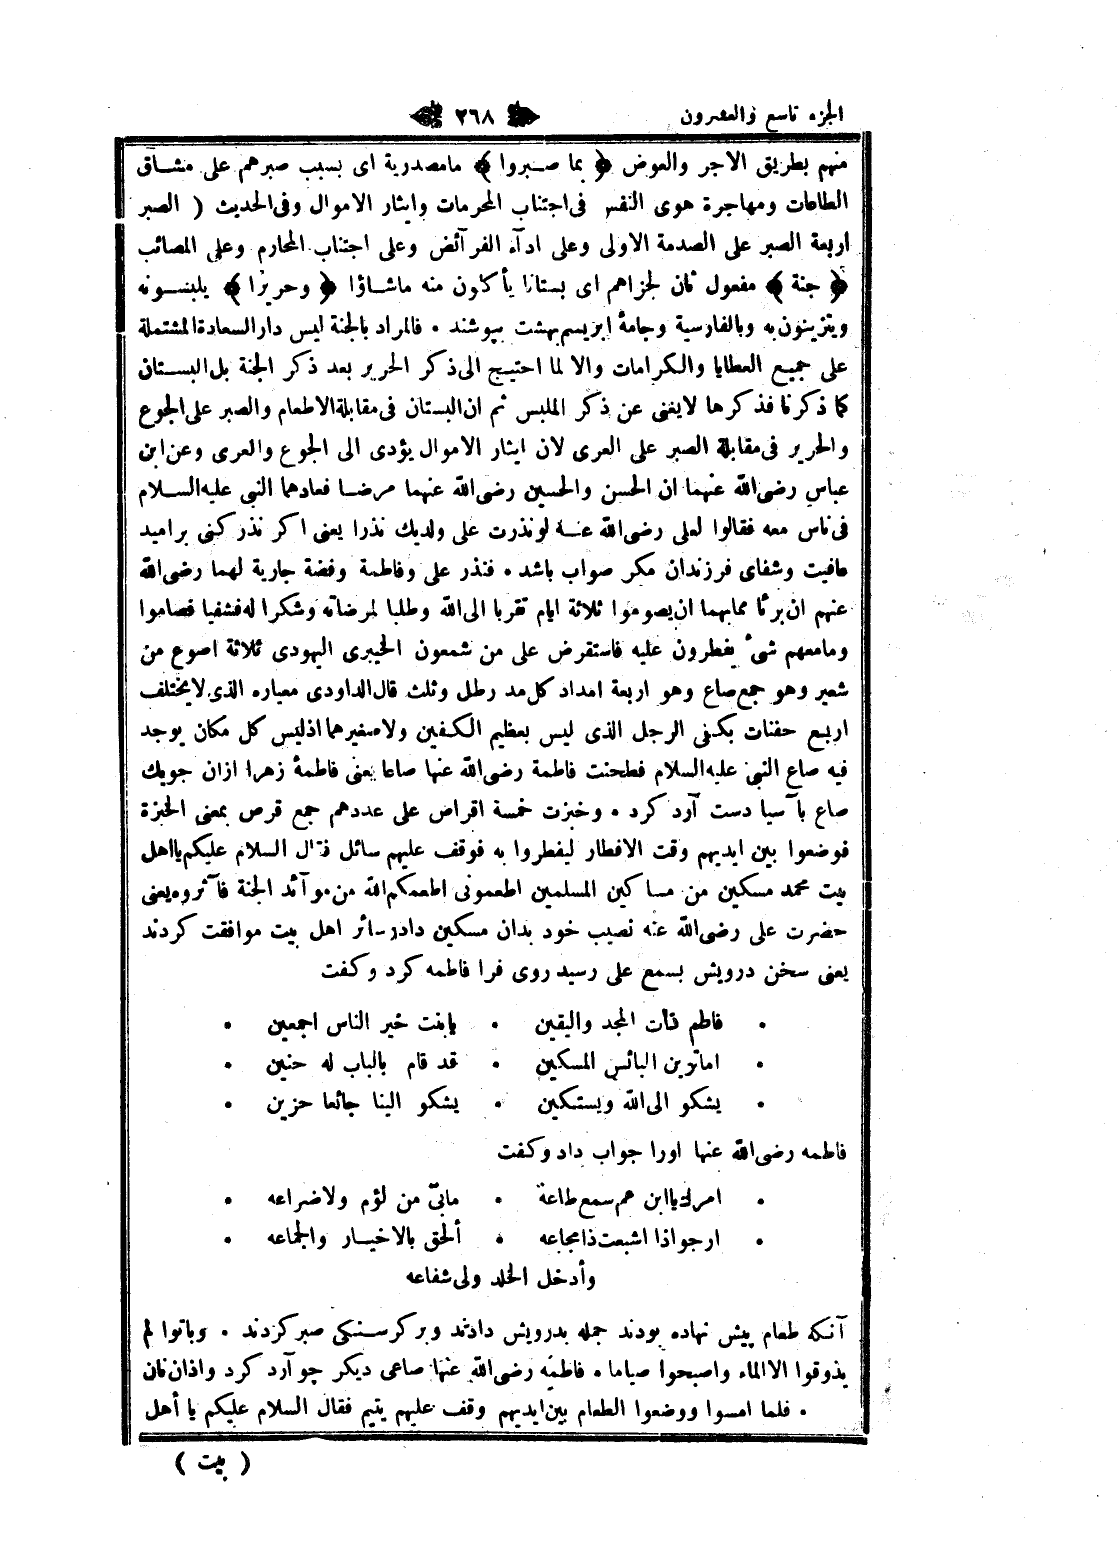 الجزء تاسع والعشرون ٢٦٨
منهم بطريق الاجر والعوض ﴿ بما صبروا ﴾ مامصدرية اى بسبب صبرهم على مشاق
الطاعات ومهاجرة هوى النفس فى اجتناب المحرمات وايثار الاموال وفى الحديث ( الصبر
اربعة الصبر على الصدمة الاولى وعلى ادآء الفرآئض وعلى اجتناب المحارم وعلى المصائب
﴿ جنة ﴾ مفعول ثان لجزاهم اى بستانا يأكلون منه ماشاؤا ﴿ وحريرا ﴾ يلبسونه
ويتزينون به وبالفارسية وجامۀ ابريسم بهشت بپوشند • فالمراد بالجنة ليس دارالسعادة المشتملة
على جميع العطايا والكرامات والا لما احتيج الى ذكر الحرير بعد ذكر الجنة بل البستان
كما ذكرنا فذكرها لايغنى عن ذكر الملبس ثم ان البستان فى مقابلة الاطعام والصبر على الجوع
والحرير فى مقابلة الصبر على العرى لان ايثار الاموال يؤدى الى الجوع والعرى وعن ابن
عباس رضى الله عنهما ان الحسن والحسين رضى الله عنهما مرضا فعادهما النبى عليه السلام
فى ناس معه فقالوا لعلى رضى الله عنه لونذرت على ولديك نذرا يعنى اكر نذر كنى براميد
عافيت وشفاى فرزندان مكر صواب باشد • فنذر على وفاطمة وفضة جارية لهما رضى الله
عنهم ان برئا ممابهما ان يصوموا ثلاثة ايام تقربا الى الله وطلبا لمرضاته وشكرا له فشفيا فصاموا
ومامعهم شىء يفطرون عليه فاستقرض على من شمعون الخيبرى اليهودى ثلاثة اصوع من
شعير وهو جمع صاع وهو اربعة امداد كل مد رطل وثلث قال الداودى معياره الذى لايختلف
اربع حفنات بكفى الرجل الذى ليس بعظيم الكفين ولاصغيرهما اذليس كل مكان يوجد
فيه صاع النبى عليه السلام فطحنت فاطمة رضى الله عنها صاعا يعنى فاطمۀ زهرا ازان جويك
صاع بآسيا دست آرد كرد • وخبزت خمسة اقراص على عددهم جمع قرص بمعنى الخبزة
فوضعوا بين ايديهم وقت الافطار ليفطروا به فوقف عليهم سائل فقال السلام عليكم يااهل
بيت محمد مسكين من مساكين المسلمين اطعمونى اطعمكم الله من موآئد الجنة فآثروه يعنى
حضرت على رضى الله عنه نصيب خود بدان مسكين داد وسائر اهل بيت موافقت كردند
يعنى سخن درويش بسمع على رسيد روى فرا فاطمه كرد وكفت
• فاطم ذات المجد واليقين • يابنت خير الناس اجمعين •
• اماترين البائس المسكين • قد قام بالباب له حنين •
• يشكو الى الله ويستكين • يشكو الينا جائعا حزين •
فاطمه رضى الله عنها اورا جواب داد وكفت
• امرك ياابن عم سمع طاعة • مابىّ من لؤم ولاضراعه •
• ارجو اذا اشبعت ذامجاعه • ألحق بالاخيار والجماعه •
وأدخل الخلد ولى شفاعه
آنكه طعام پيش نهاده بودند جمله بدرويش دادند وبر كرسنكى صبر كردند • وباتوا لم
يذوقوا الاالماء واصبحوا صياما • فاطمه رضى الله عنها صاعى ديكر جو آرد كرد واذان نان
• فلما امسوا ووضعوا الطعام بين ايديهم وقف عليهم يتيم فقال السلام عليكم يا أهل
( بيت )